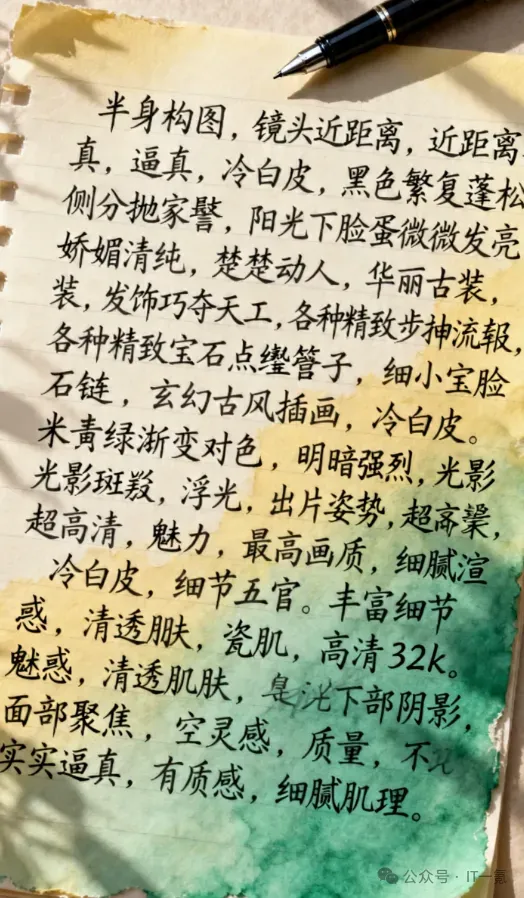 半身构图，镜头近距离，近距离
真，逼真，冷白皮，黑色繁复蓬松
侧分抛家髻，阳光下脸蛋微微发亮
娇媚清纯，楚楚动人，华丽古装，
装，发饰巧夺天工，各种精致步抻流
各种精致宝石点 子，细小宝脸
石链，玄幻古风插画，冷白皮。
米青绿渐变对色，明暗强烈，光影
光影斑 ，浮光，出片姿势，超高
超高清，魅力，最高画质，细腻渲
冷白皮，细节五官。丰富细节
惑，清透 肤，瓷肌，高清32k。
魅惑，清透肌肤， 下部阴影，
面部聚焦，空灵感，质量，不
实实逼真，有质感，细腻肌理。
公众号·IT一氪